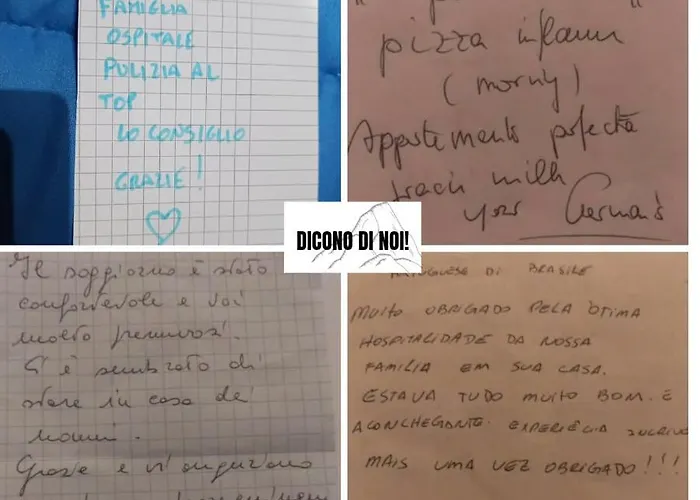 FAMIGLIA
OSPITALE
PULIZIA AL
TOP
LO CONSIGLIO
GRAZIE!
pizza
(morny)
Appartemento perfecta
milk
your German's
DICONO DI NOI!
Il soggiorno è stato
confortevole e voi
molto premurosi.
Ci è sembrato di
stare in casa dei
nonni.
Grazie e vi auguriamo
PORTUGUESE DI BRASILE
MUITO OBRIGADO PELA ÓTIMA
HOSPITALIDADE DA NOSSA
FAMILIA EM SUA CASA.
ESTAVA TUDO MUITO BOM. E
ACONCHEGANTE. EXPERIÊCIA
MAIS UMA VEZ OBRIGADO!!!